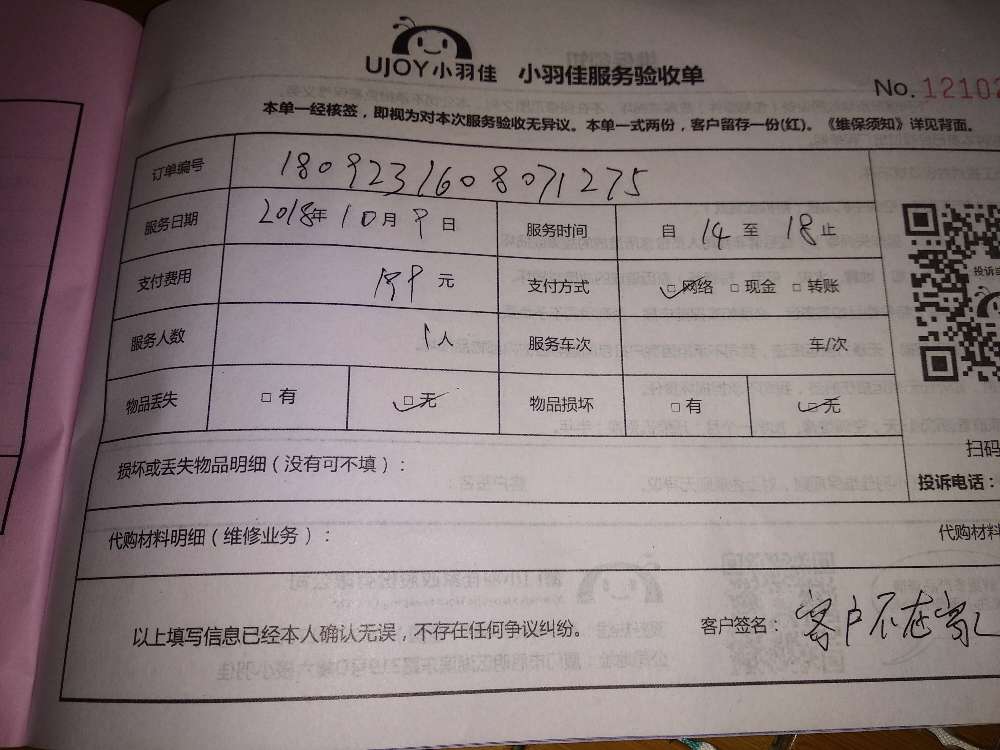 UJOY小羽佳 小羽佳服务验收单
No. 12102
本单一经核签，即视为对本次服务验收无异议。本单一式两份，客户留存一份(红)。《维保须知》详见背面。
订单编号 1809231608071275
服务日期 2018年10月9日 服务时间 自 14 至 18 止
支付费用 元 支付方式 □网络 □现金 □转账
服务人数 1人 服务车次 车/次
物品丢失 □有 □无 物品损坏 □有 □无
投诉
扫码
损坏或丢失物品明细（没有可不填）：
投诉电话：
代购材料明细（维修业务）： 代购材料
以上填写信息已经本人确认无误，不存在任何争议纠纷。 客户签名：客户不在家